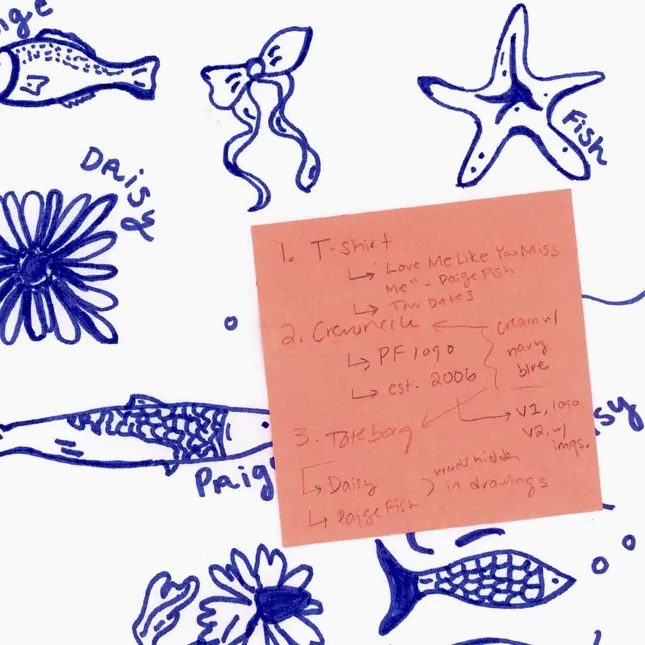 ige
DAisy
Fish
1. T-shirt
↳ "Love Me Like You Miss
Me" - Paige Fish
↳ Tour Dates
2. Crewneck
↳ PF logo
↳ est. 2006
cream w/
navy
blue
V1, logo
V2, w/
imgs.
3. Totebag
↳ Daisy
↳ Paige Fish
words hidden
in drawings
PAig
sy